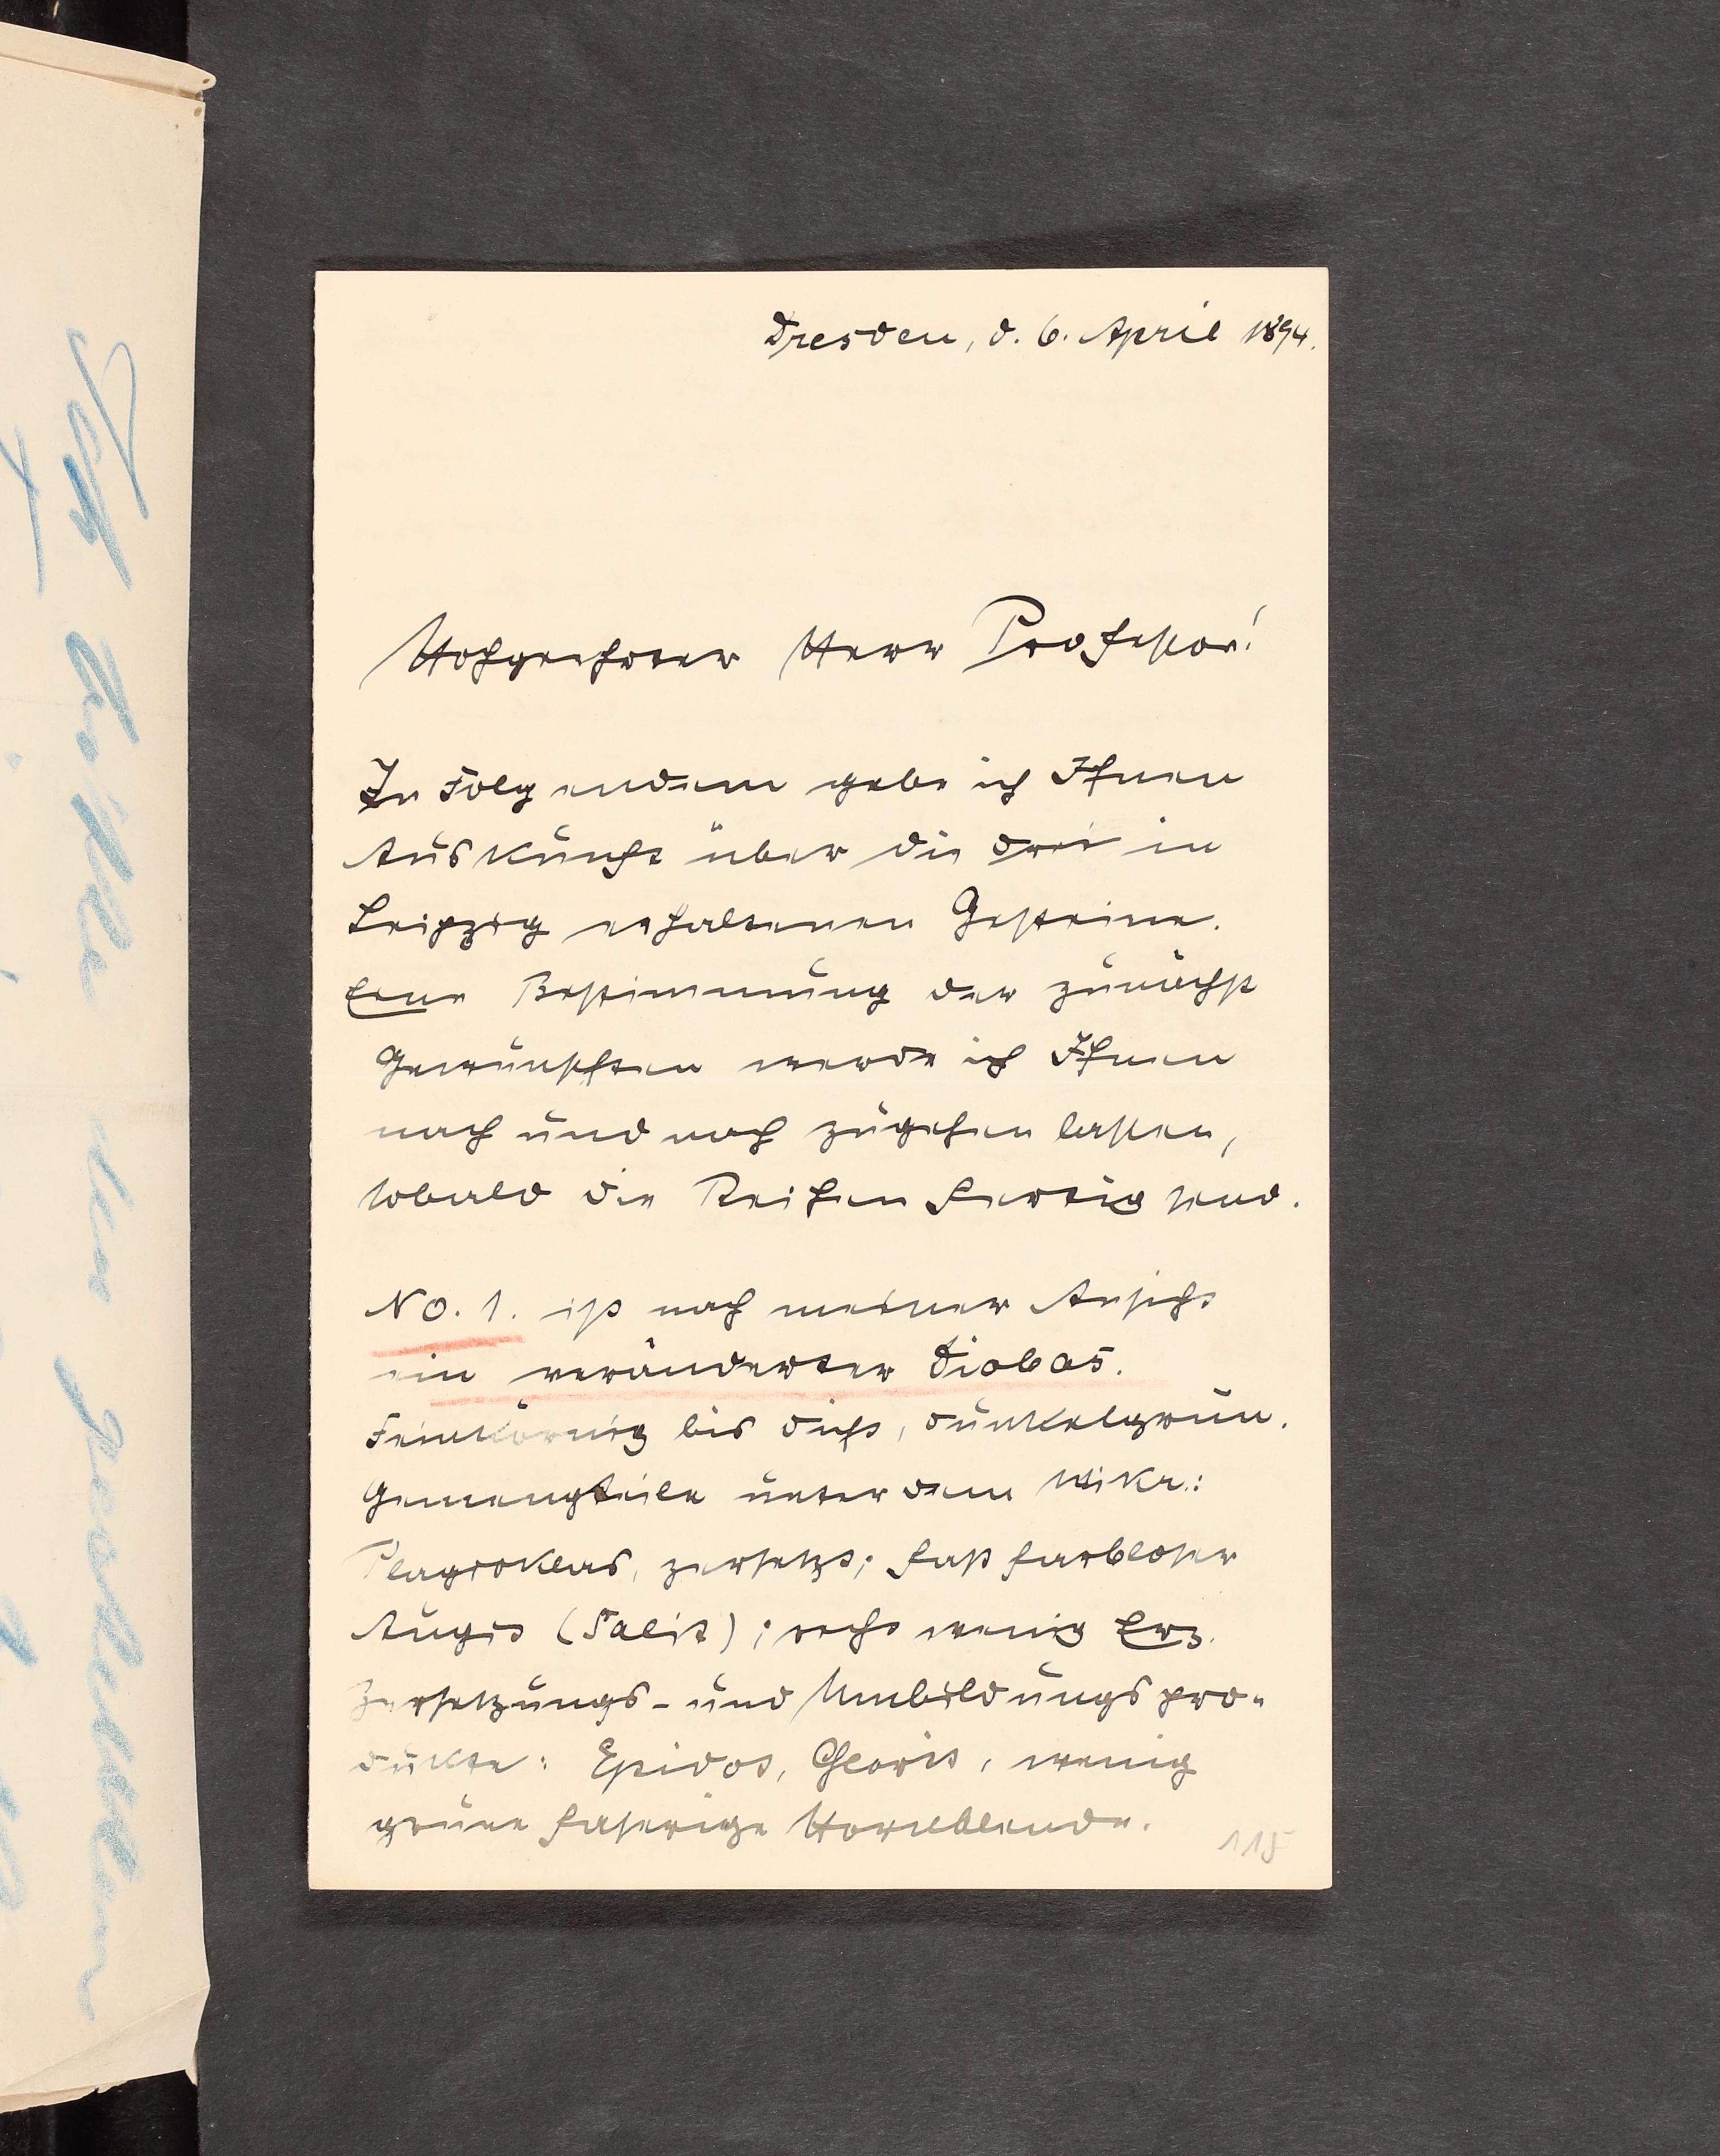 Dresden, d. 6. April 1894.
Hochgeehrter Herr Professor!
In Folgendem gebe ich Ihnen
Auskunft über die drei in
Leipzig erhaltenen Gesteine.
Eine Bestimmung der zunächst
Gewünschten werde ich Ihnen
nach und nach zugehen lassen,
sobald die Reihen fertig sind.
No. 1. ist nach meiner Ansicht
ein veränderter Diabas.
Feinkörnig bis dicht, dunkelgrün.
Gemengteile unter dem Mikr.:
Plagioklas, zersetzt; fast farbloser
Augit (Salit); recht wenig Erz.
Zersetzungs- und Umbildungspro-
dukte: Epidot, Chlorit, wenig
grüne faserige Hornblende.
115